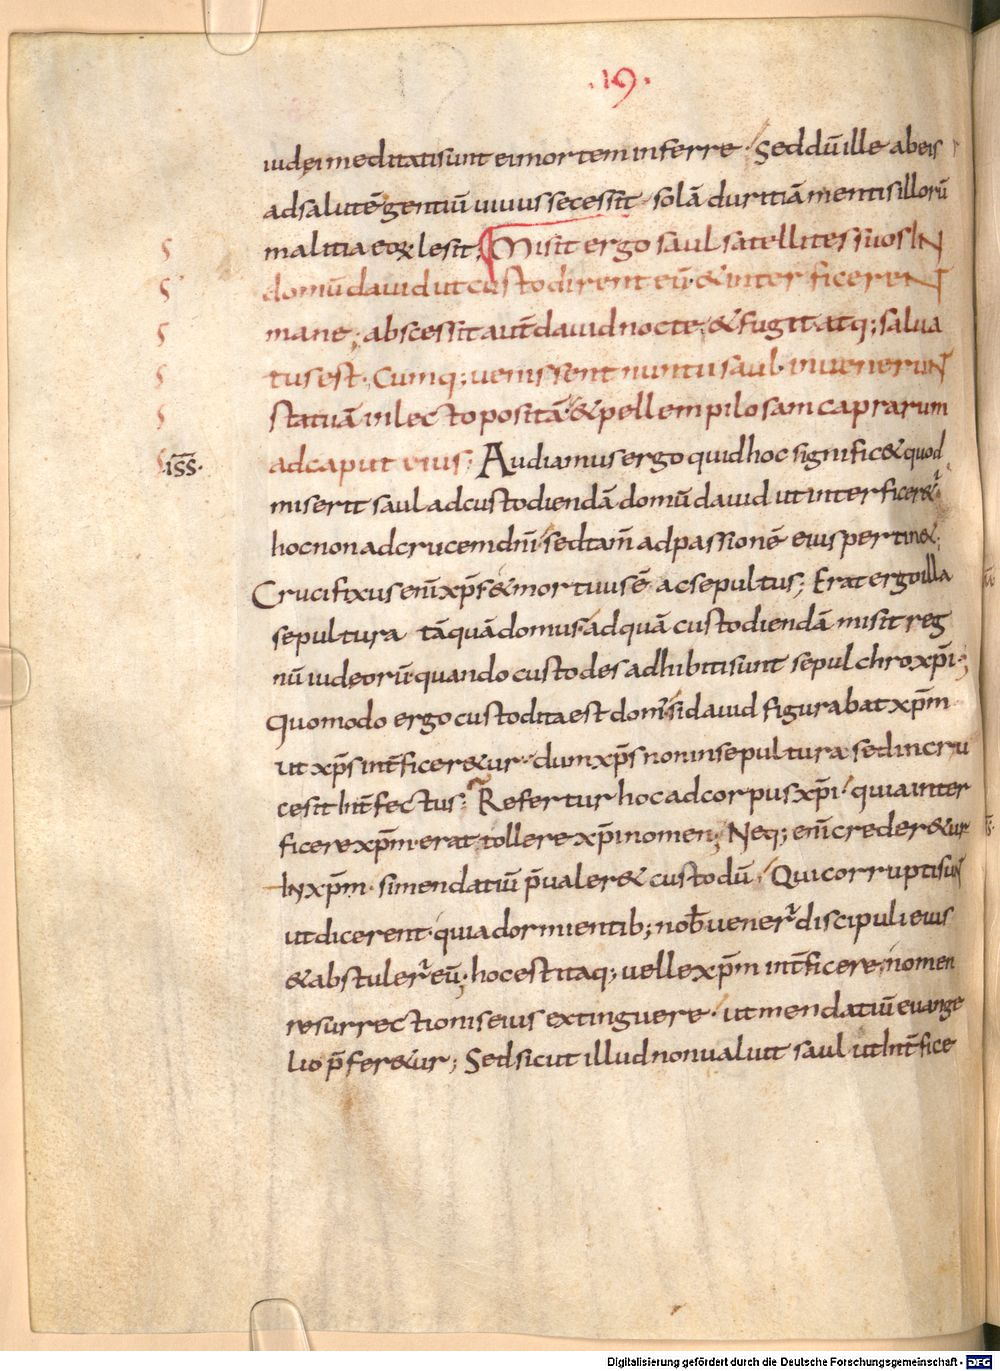 .19.
iudei meditati sunt ei mortem inferre. Sed dū ille ab eis
ad salutē gentiū uiuus secessit. solā duritiā mentis illorū
malitia eoꝝ lesit; Misit ergo saul satellites suos IN
domū dauid ut custodirent eū. & interficereNT
mane; abscessit aut̄ dauid nocte. & fugit atq; salua
tus est. Cumq; uenissent nuntii saul. inueneruNT
statuā in lecto positā. & pellem pilosam caprarum
ad caput eius; Audiamus ergo quid hoc signific& quod
iss̄.
miserit saul ad custodiendā domū dauid ut interficer&ur.
hoc non ad crucem dn̄i sed tam̄ ad passionē eius pertin&;
Crucifixus enī xp̄s & mortuus ē ac sepultus; Erat ergo illa
sepultura tāquā domus. ad quā custodiendā misit reg
nū iudeorū quando custodes adhibiti sunt sepulchro xp̄i;
Quomodo ergo custodita est dom' si dauid figurabat xp̄m
ut xp̄s int̄ficer&ur. dum xp̄s non in sepultura sed in cru
ce sit int̄fectus; Refertur hoc ad corpus xp̄i. quia inter
ficere xp̄m. erat tollere xp̄i nomen; Neq; enī creder&ur
IN xp̄m. si mendatiū p̄ualer& custodū. Qui corrupti suNT
ut dicerent. quia dormientib; nob̄ uener̄ discipuli eius
& abstuler̄ eū; hoc est itaq; uelle xp̄m int̄ficere. nomen
resurrectionis eius extinguere. ut mendatiū euange
lio p̄fer&ur; Sed sicut illud non ualuit saul ut int̄fice
Digitalisierung gefördert durch die Deutsche Forschungsgemeinschaft - DFG